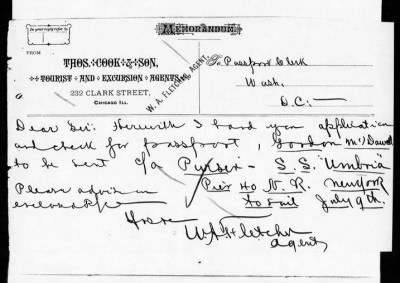 In your reply refer to
MEMORANDUM.
FROM
THOS. COOK & SON,
TOURIST AND EXCURSION AGENTS,
232 CLARK STREET,
CHICAGO ILL.
W. A. FLETCHER, AGENT.
To Passport Clerk
Wash.
D.C.
Dear Sir: Herewith I hand you application
and check for passport, Gordon McDowell
to be sent c/o Purser - S.S. "Umbria"
Pier 40 N.R. New York
to sail July 9th.
Please advise in
enclosed
W A Fletcher
Agent